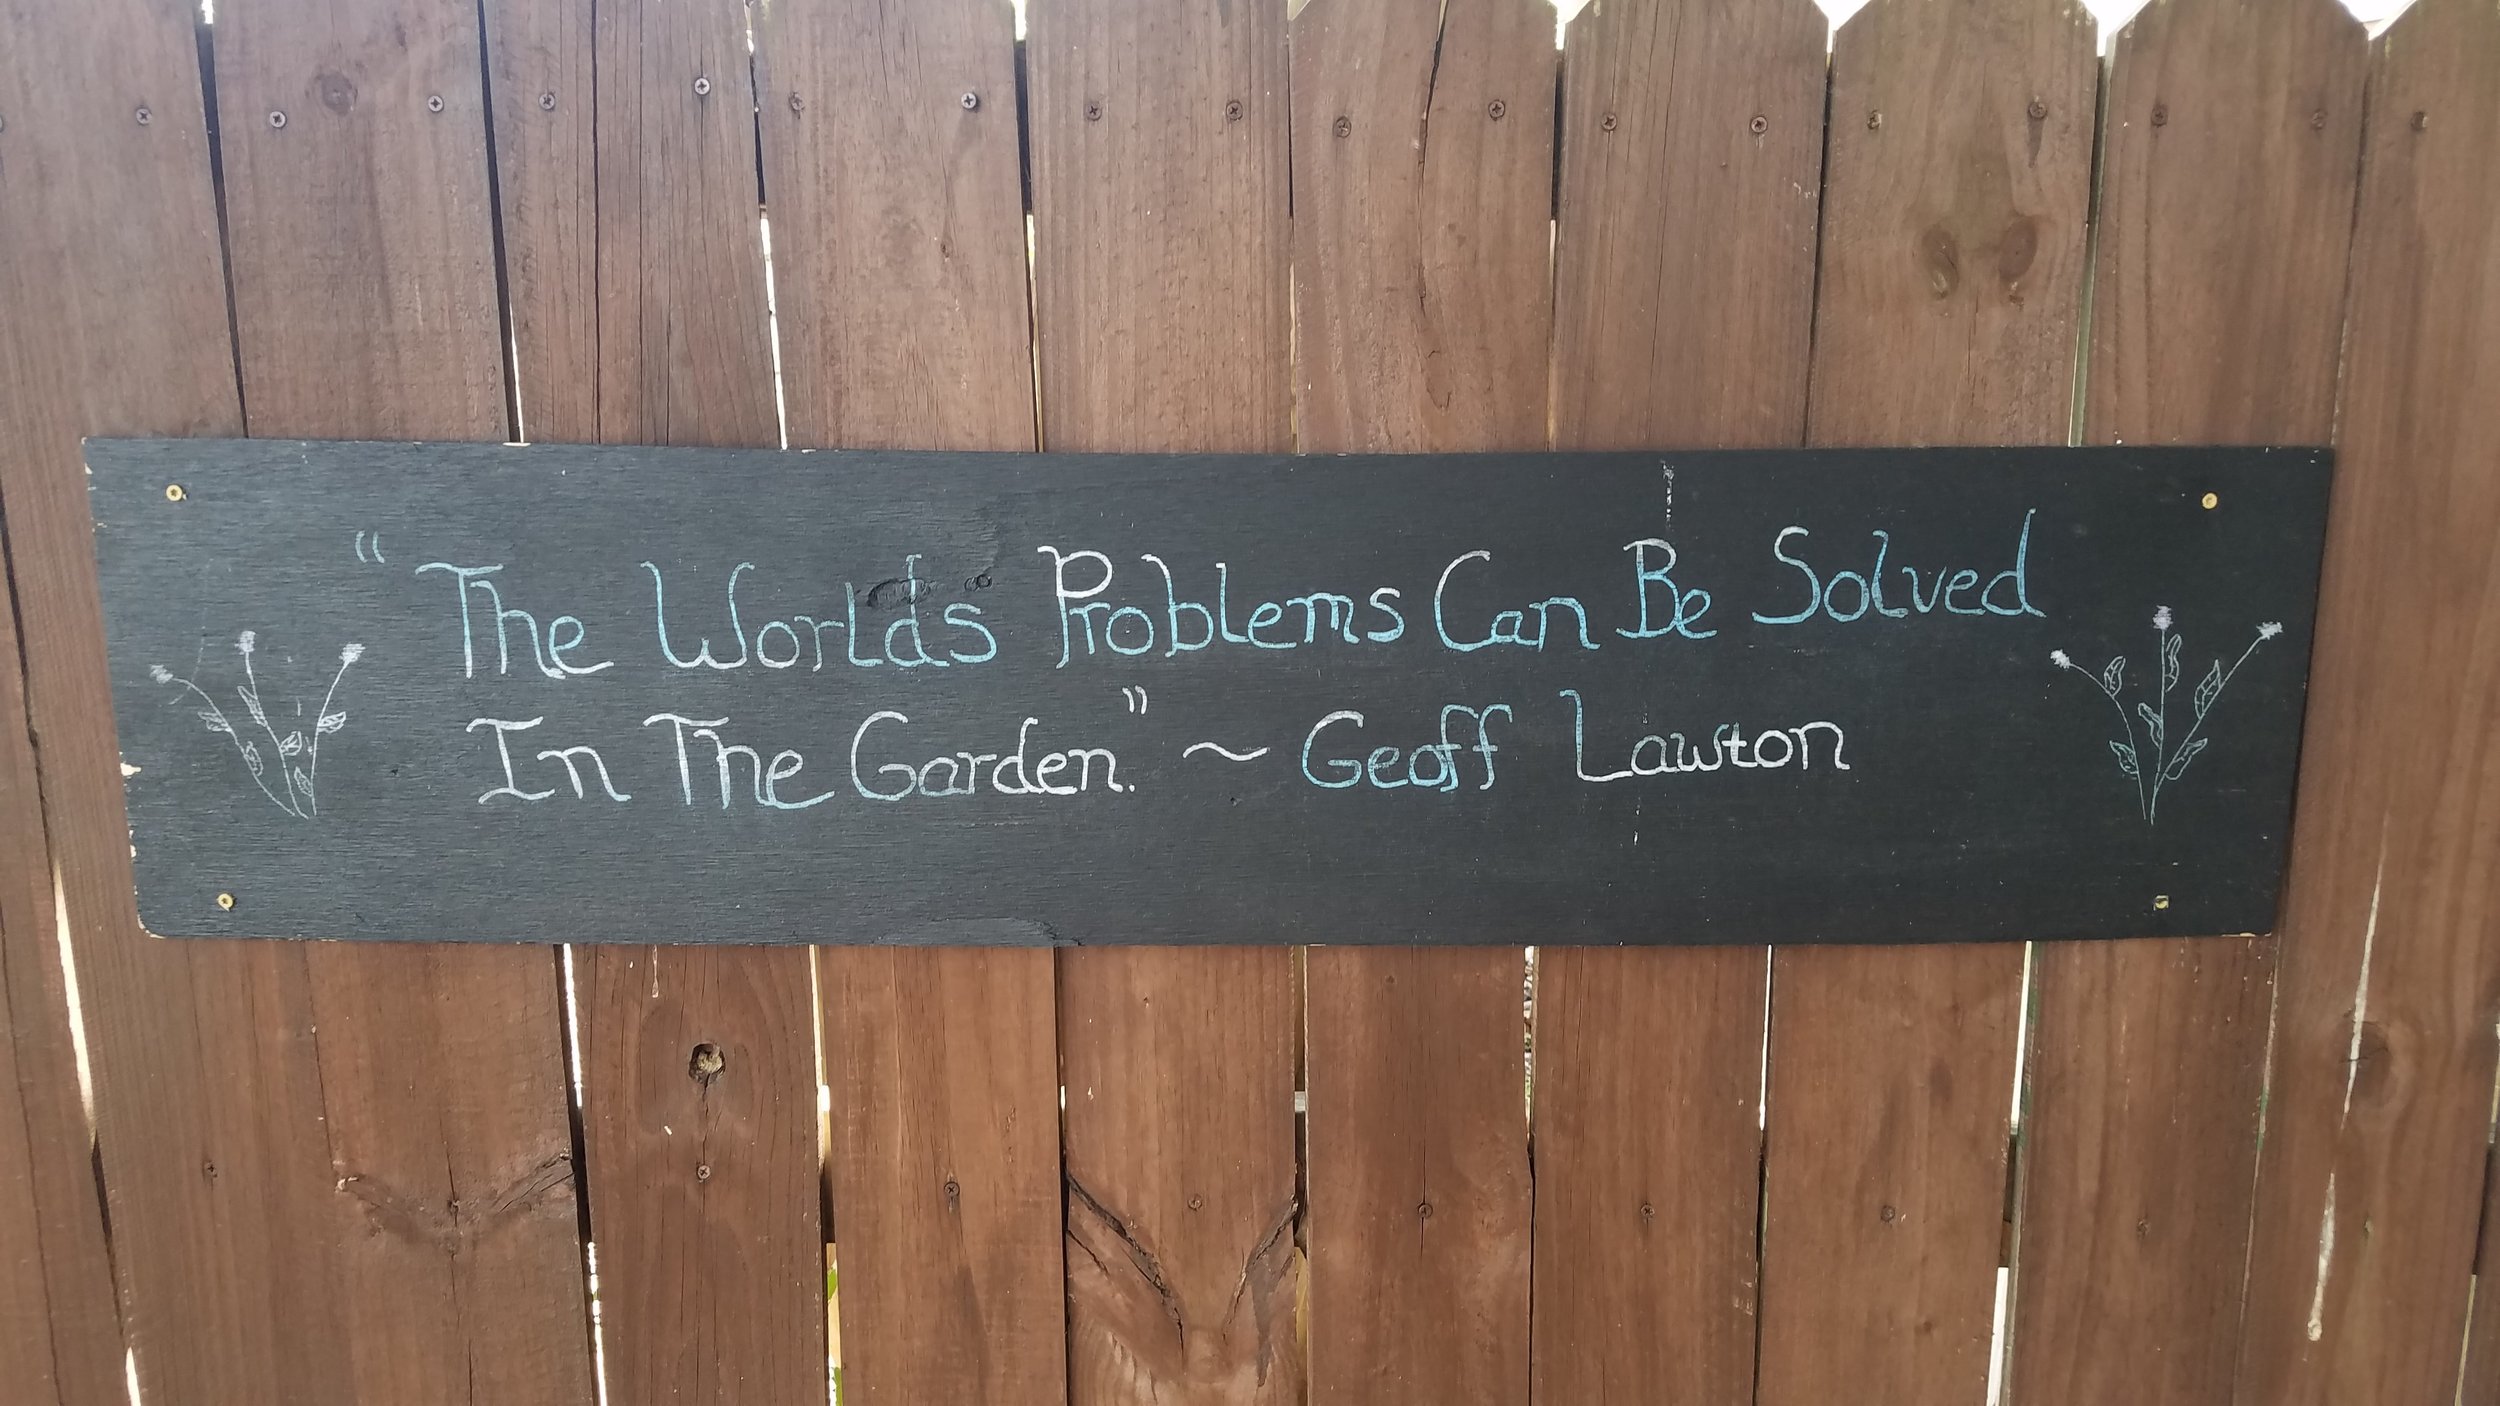 "The Worlds Problems Can Be Solved
In The Garden." ~ Geoff Lawton